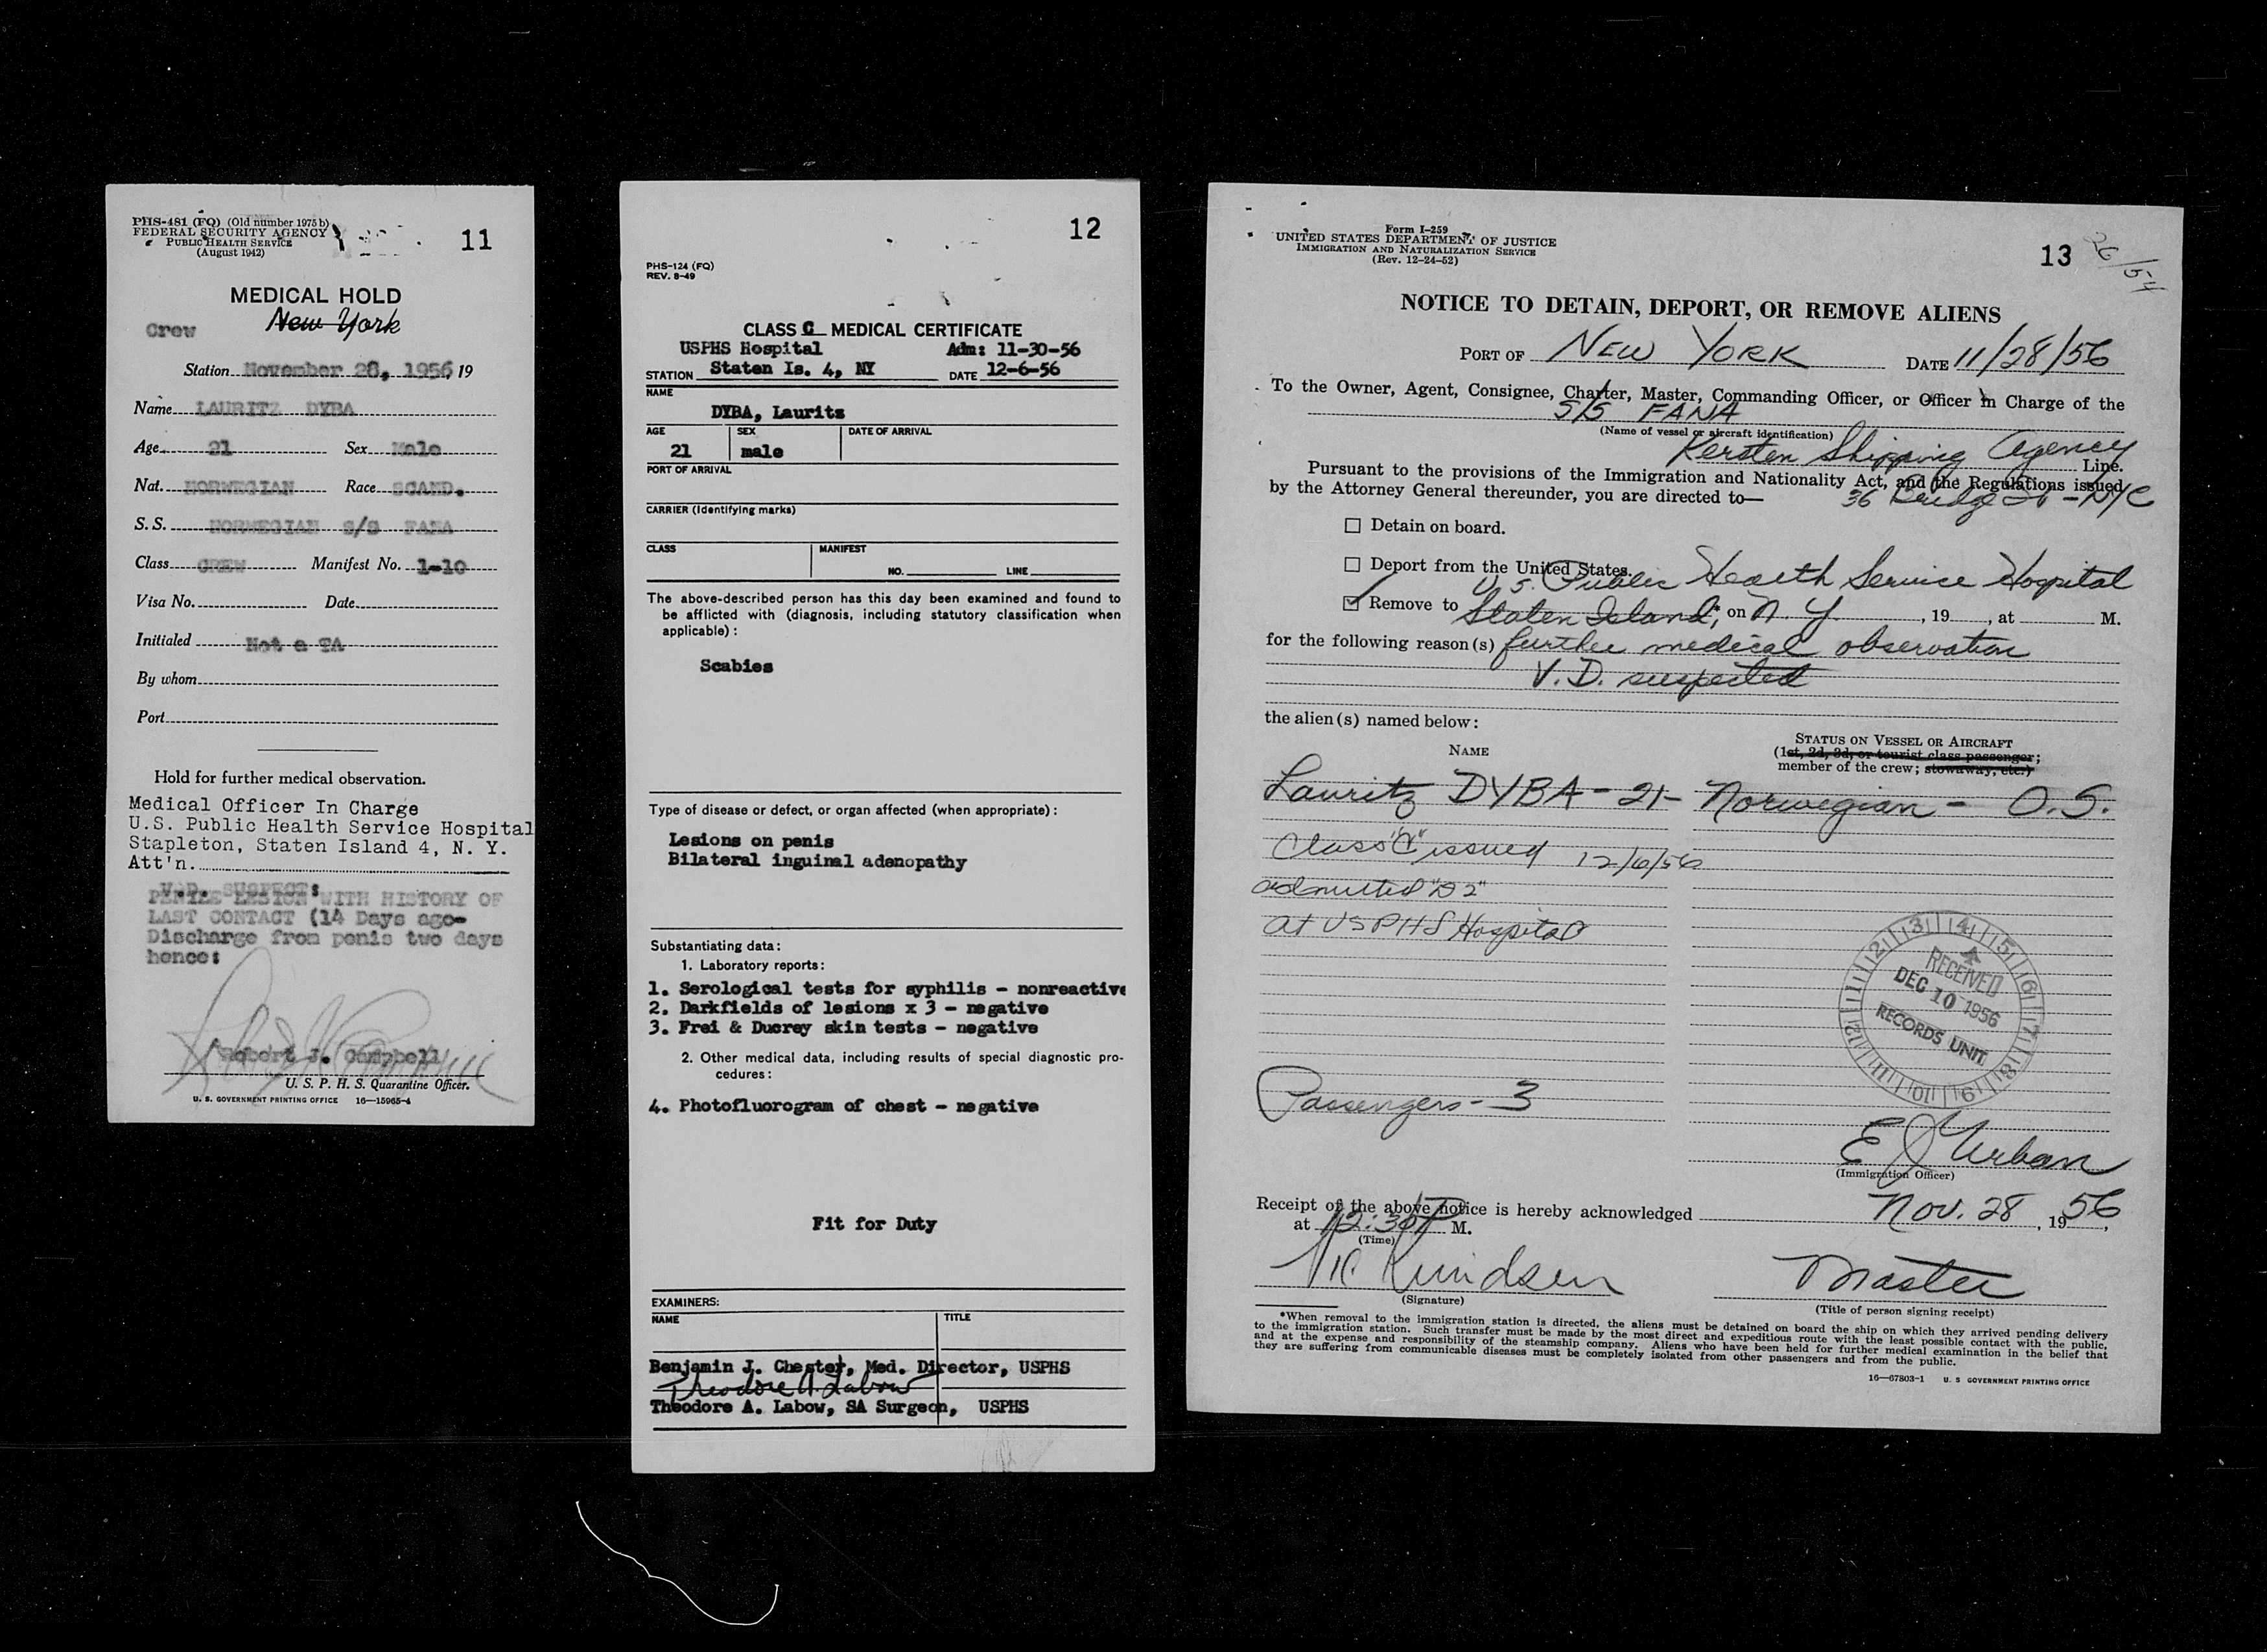 PHS-481 (FQ) (Old number 1975 b)
FEDERAL SECURITY AGENCY
PUBLIC HEALTH SERVICE
(August 1942)
11
MEDICAL HOLD
Crew New York
Station November 28, 1956, 19
Name LAURITZ DYBA
Age 21 Sex Male
Nat. NORWEGIAN Race SCAND.
S. S. NORWEGIAN S/S FANA
Class CREW Manifest No. 1-10
Visa No. Date
Initialed Not a TA
By whom
Port
Hold for further medical observation.
Medical Officer In Charge
U.S. Public Health Service Hospital
Stapleton, Staten Island 4, N. Y.
Att'n.
V.D. SUSPECT:
PENILE LESION WITH HISTORY OF
LAST CONTACT (14 Days ago-
Discharge from penis two days
hence:
Robert J. Campbell
U. S. P. H. S. Quarantine Officer.
U. S. GOVERNMENT PRINTING OFFICE 16—15965-4
12
PHS-124 (FQ)
REV. 8-49
CLASS C MEDICAL CERTIFICATE
USPHS Hospital Adm: 11-30-56
STATION Staten Is. 4, NY DATE 12-6-56
NAME
DYBA, Laurits
AGE SEX DATE OF ARRIVAL
21 male
PORT OF ARRIVAL
CARRIER (Identifying marks)
CLASS MANIFEST
NO. LINE
The above-described person has this day been examined and found to
be afflicted with (diagnosis, including statutory classification when
applicable) :
Scabies
Type of disease or defect, or organ affected (when appropriate) :
Lesions on penis
Bilateral inguinal adenopathy
Substantiating data :
1. Laboratory reports :
1. Serological tests for syphilis - nonreactive
2. Darkfields of lesions x 3 - negative
3. Frei & Ducrey skin tests - negative
2. Other medical data, including results of special diagnostic pro-
cedures :
4. Photofluorogram of chest - negative
Fit for Duty
EXAMINERS:
NAME TITLE
Benjamin J. Chester, Med. Director, USPHS
Theodore A. Labow
Theodore A. Labow, SA Surgeon, USPHS
Form I-259
UNITED STATES DEPARTMENT OF JUSTICE
IMMIGRATION AND NATURALIZATION SERVICE
(Rev. 12-24-52)
13
NOTICE TO DETAIN, DEPORT, OR REMOVE ALIENS
PORT OF NEW YORK DATE 11/28/56
To the Owner, Agent, Consignee, Charter, Master, Commanding Officer, or Officer in Charge of the
S/S FANA
(Name of vessel or aircraft identification)
Kersten Shipping Agency Line.
Pursuant to the provisions of the Immigration and Nationality Act, and the Regulations issued
by the Attorney General thereunder, you are directed to— 36 Bridge St - NYC
☐ Detain on board.
☐ Deport from the United States.
U.S. Public Health Service Hospital
☑ Remove to Staten Island,* on N. Y. , 19 , at M.
for the following reason(s) further medical observation
V. D. suspected
the alien(s) named below :
NAME
STATUS ON VESSEL OR AIRCRAFT
(1st, 2d, 3d, or tourist class passenger;
member of the crew; stowaway, etc.)
Lauritz DYBA - 21 - Norwegian - O.S.
Class "C" issued 12/6/56
admitted "D2"
at USPHS Hospital
RECEIVED
DEC 10 1956
RECORDS UNIT
Passengers - 3
E J Urban
(Immigration Officer)
Receipt of the above notice is hereby acknowledged Nov. 28, 1956,
at 12:30 P M.
(Time)
Knudsen Master
(Signature) (Title of person signing receipt)
*When removal to the immigration station is directed, the aliens must be detained on board the ship on which they arrived pending delivery
to the immigration station. Such transfer must be made by the most direct and expeditious route with the least possible contact with the public,
and at the expense and responsibility of the steamship company. Aliens who have been held for further medical examination in the belief that
they are suffering from communicable diseases must be completely isolated from other passengers and from the public.
16—67803-1 U. S GOVERNMENT PRINTING OFFICE